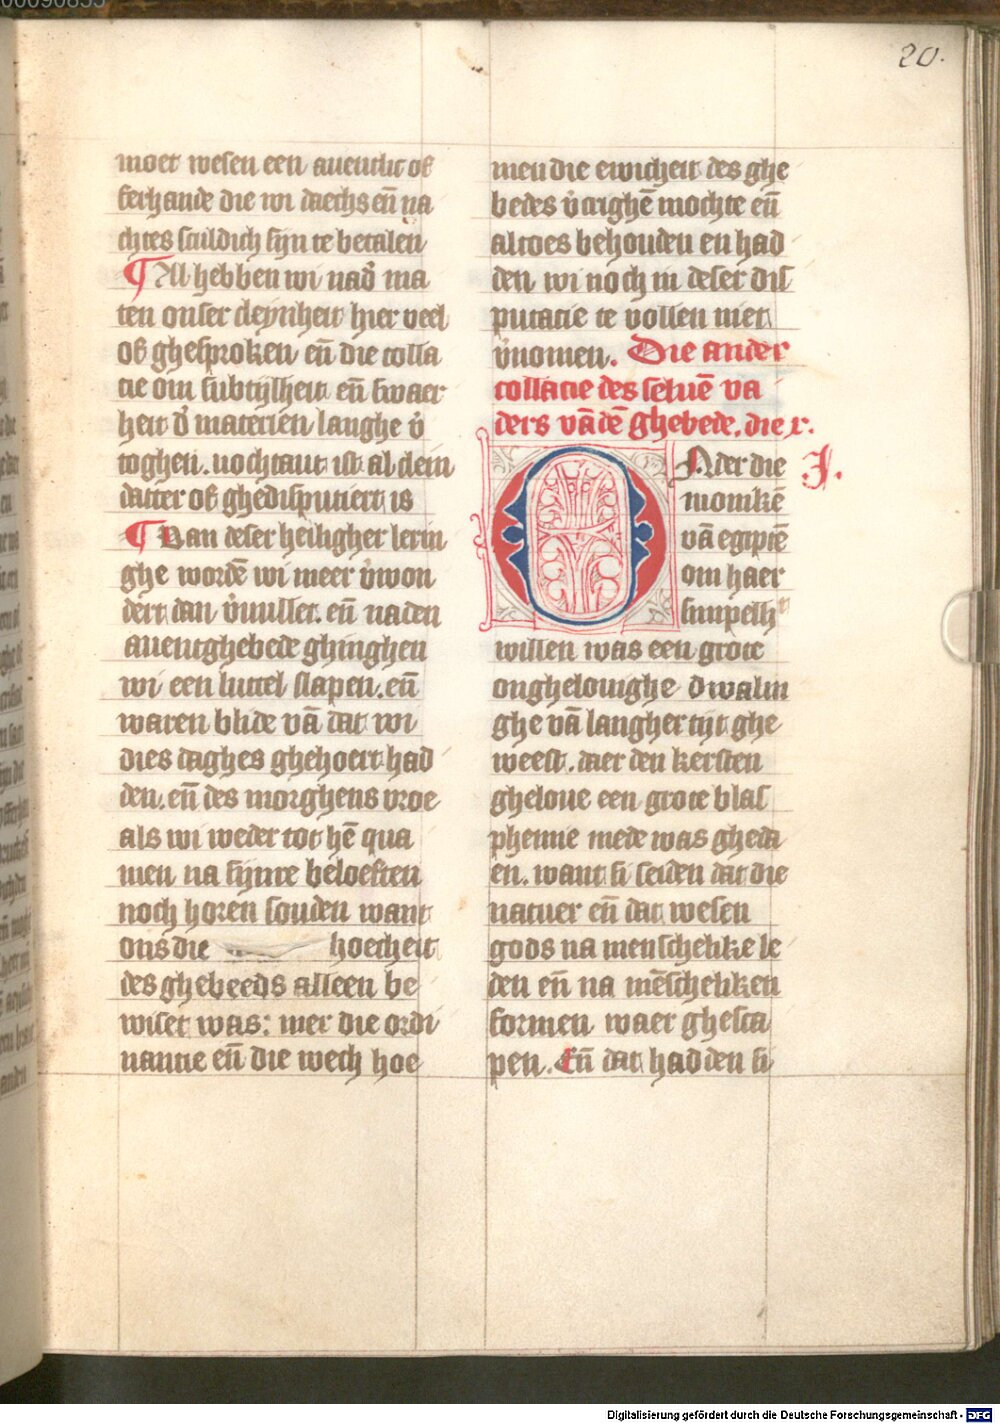 20.
moet wesen een auentlic of
ferhande die wi daechs en̄ na
chtes sculdich sijn te betalen
Al hebben wi nad̄ ma
ten onser cleynheit hier veel
of ghesproken en̄ die colla
cie om subtijlheit en̄ swaer
heit d̄ materien langhe v̄
toghen. nochtant ist al clein
datter of ghedisputiert is
Uan deser heiligher lerin
ghe wordē wi meer v̄won
dert dan v̄uullet. en̄ na den
auentghebede ghinghen
wi een luttel slapen. en̄
waren blide vā dat wi
dies daghes ghehoert had
den. en̄ des morghens vroe
als wi weder tot hē qua
men na sijnre beloeften
noch horen souden want
ons die hoecheit
des ghebeeds alleen be
wiset was: mer die ordi
nancie en̄ die wech hoe
men die ewicheit des ghe
bedes v̄crighē mochte en̄
altoes behouden en had
den wi noch in deser dis
putacie te vollen niet
v̄nomen. Die ander
collacie des seluē va
ders vādē ghebede. die x.
Ader die J.
monikē
vā egiptē
om haer
simpelht
willen was een grote
onghelouighe dwalin
ghe vā langher tijt ghe
weest. daer den kersten
gheloue een grote blas
phemie mede was gheda
en. want si seiden dat die
natuer en̄ dat wesen
gods na menschelike le
den en̄ na mēscheliken
formen waer ghesca
pen. En̄ dat hadden si
Digitalisierung gefördert durch die Deutsche Forschungsgemeinschaft - DFG